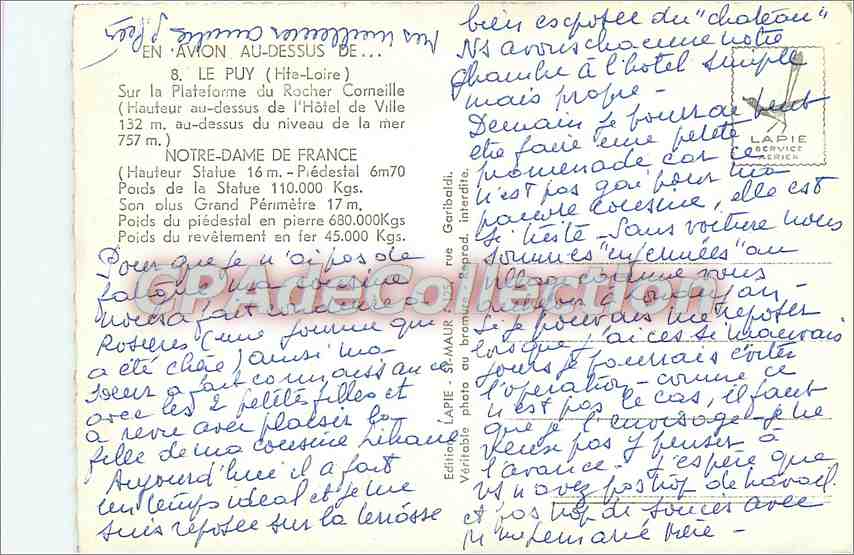 EN AVION AU-DESSUS DE...
8. LE PUY (Hte-Loire)
Sur la Plateforme du Rocher Corneille
(Hauteur au-dessus de l'Hôtel de Ville
132 m. au-dessus du niveau de la mer
757 m.)
NOTRE-DAME DE FRANCE
(Hauteur Statue 16 m. - Piédestal 6m70
Poids de la Statue 110.000 Kgs.
Son plus Grand Périmètre 17 m,
Poids du piédestal en pierre 680.000Kgs
Poids du revêtement en fer 45.000 Kgs.
Pour que je n'ai pas de
ma cousine
nous a fait conduire à
Rosières (une journée que
a été chère) ainsi ma
soeur a fait connaissance
avec les 2 petites filles et
a revu avec plaisir la
fille de ma cousine Liliane
Aujourd'hui il a fait
un temps idéal et je me
suis reposée sur la terrasse
bien exposée du "chateau"
Ns avons chacune notre
chambre à l'hotel simple
mais propre -
Demain je pourrai peut
etre faire une petite
promenade car ce
n'est pas gai pour ma
pauvre cousine, elle est
si triste - Sans voiture nous
sommes au
village comme vous
Si je pouvais me reposer
lorsque j'ai ces si mauvais
jours je pourrais éviter
l'opération - comme ce
n'est pas le cas, il faut
que je l'envisage - je ne
veux pas y penser à
l'avance - J'espère que
vs n'avez pas trop de travail
et pas trop de soucis avec
mes meilleures amitiés
LAPIE
SERVICE
AERIEN
Editions LAPIE - St-MAUR - 125, rue Garibaldi.
Véritable photo au bromure - Reprod. interdite.
CPADeCollection.com